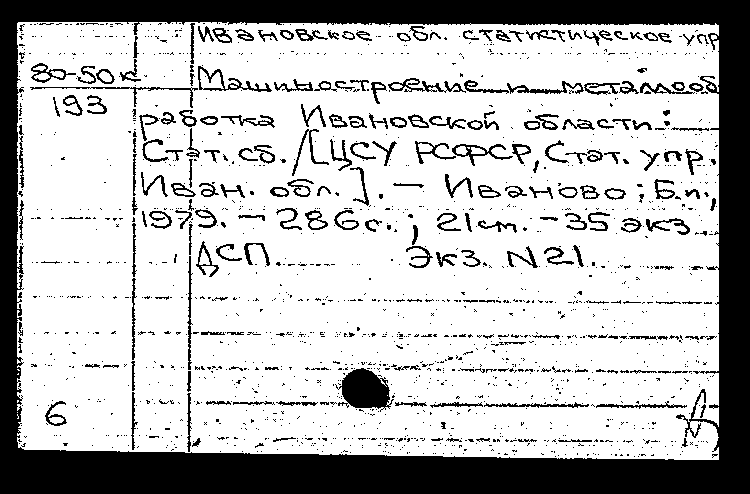 Ивановское обл. статистическое упр
80-50к Машиностроение и металлооб
193
работка Ивановской области:
Стат. сб. /[ЦСУ РСФСР, Стат. упр.
Иван. обл.]. — Иваново: Б.и.,
1979. — 286 с.; 21 см. — 35 экз
ДСП. Экз. N21.
6